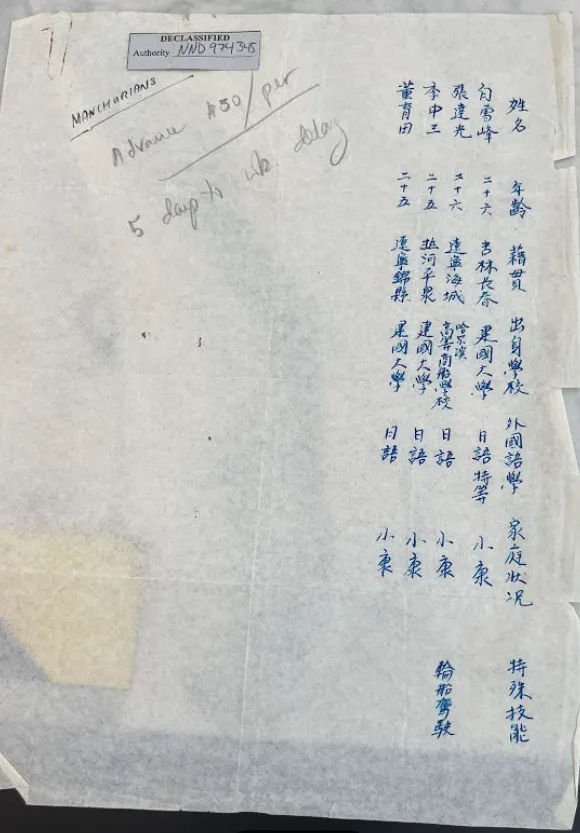 DECLASSIFIED
Authority NND 974345
MANCHURIANS
Advance $50/per
5 days to wk. delay
姓名 年齡 藉貫 出身學校 外國語學 家庭狀况 特殊技能
白雪峰 二十六 吉林長春 建國大學 日語特等 小康
張達光 二十六 遼寧海城 哈尔濱高等商船學校 日語 小康 輪船駕駛
李中三 二十五 热河平泉 建國大學 日語 小康
董育田 二十五 遼寧錦縣 建國大學 日語 小康